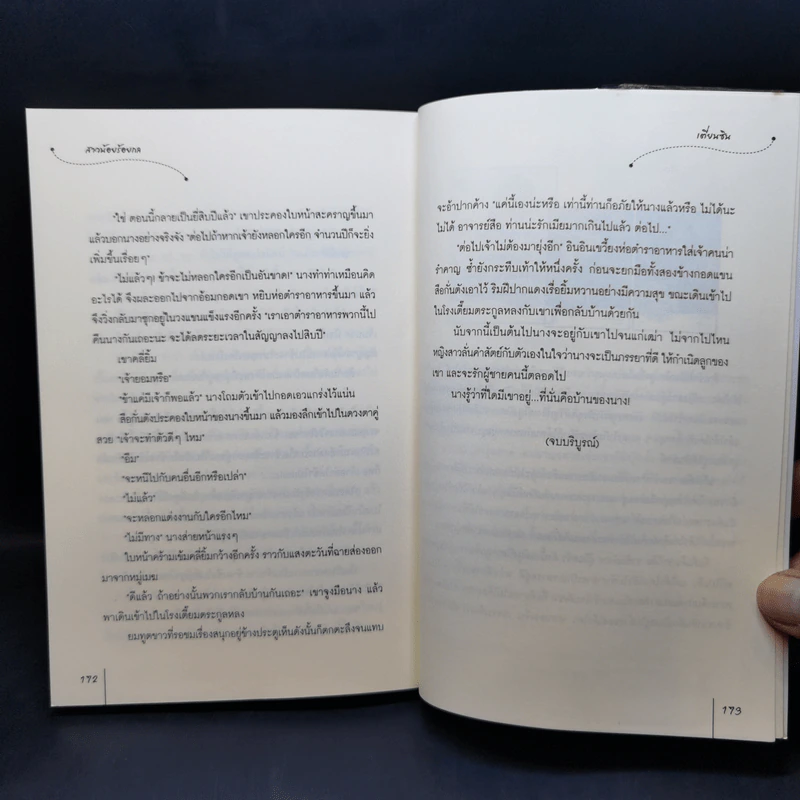 สาวน้อยร้อยกล
"ใช่ ตอนนี้กลายเป็นยี่สิบปีแล้ว" เขาประคองใบหน้าสะคราญขึ้นมา
แล้วบอกนางอย่างจริงจัง "ต่อไปถ้าหากเจ้ายังหลอกใครอีก จำนวนปีก็จะยิ่ง
เพิ่มขึ้นเรื่อยๆ"
"ไม่แล้วๆ! ข้าจะไม่หลอกใครอีกเป็นอันขาด!" นางทำท่าเหมือนคิด
อะไรได้ จึงผละออกไปจากอ้อมกอดเขา หยิบห่อตำราอาหารขึ้นมา แล้ว
จึงวิ่งกลับมาซุกอยู่ในวงแขนแข็งแรงอีกครั้ง "เราเอาตำราอาหารพวกนี้ไป
คืนนางกันเถอะนะ จะได้ลดระยะเวลาในสัญญาลงไปสิบปี"
เขาคลี่ยิ้ม
"เจ้ายอมหรือ"
"ข้าแค่มีเจ้าก็พอแล้ว" นางโถมตัวเข้าไปกอดเอวแกร่งไว้แน่น
สือกั่นดังประคองใบหน้าของนางขึ้นมา แล้วมองลึกเข้าไปในดวงตาคู่
สวย "เจ้าจะทำตัวดีๆ ไหม"
"อืม"
"จะหนีไปกับคนอื่นอีกหรือเปล่า"
"ไม่แล้ว"
"จะหลอกแต่งงานกับใครอีกไหม"
"ไม่มีทาง" นางส่ายหน้าแรงๆ
ใบหน้าคร้ามเข้มคลี่ยิ้มกว้างอีกครั้ง ราวกับแสงตะวันที่ฉายส่องออก
มาจากหมู่เมฆ
"ดีแล้ว ถ้าอย่างนั้นพวกเรากลับบ้านกันเถอะ" เขาจูงมือนาง แล้ว
พาเดินเข้าไปในโรงเตี๊ยมตระกูลหลง
ยมทูตขาวที่รอชมเรื่องสนุกอยู่ข้างประตูเห็นดังนั้นก็ตกตะลึงจนแทบ
172
เตี่ยนซิน
จะอ้าปากค้าง "แค่นี้เองน่ะหรือ เท่านี้ท่านก็อภัยให้นางแล้วหรือ ไม่ได้นะ
ไม่ได้ อาจารย์สือ ท่านน่ะรักเมียมากเกินไปแล้ว ต่อไป..."
"ต่อไปเจ้าไม่ต้องมายุ่งอีก" อินอินเขวี้ยงห่อตำราอาหารใส่เจ้าคนน่า
รำคาญ ซ้ำยังกระทืบเท้าให้หนึ่งครั้ง ก่อนจะยกมือทั้งสองข้างกอดแขน
สือกั่นดังเอาไว้ ริมฝีปากแดงเรื่อยิ้มหวานอย่างมีความสุข ขณะเดินเข้าไป
ในโรงเตี๊ยมตระกูลหลงกับเขาเพื่อกลับบ้านด้วยกัน
นับจากนี้เป็นต้นไปนางจะอยู่กับเขาไปจนแก่เฒ่า ไม่จากไปไหน
หญิงสาวลั่นคำสัตย์กับตัวเองในใจว่านางจะเป็นภรรยาที่ดี ให้กำเนิดลูกของ
เขา และจะรักผู้ชายคนนี้ตลอดไป
นางรู้ว่าที่ใดมีเขาอยู่...ที่นั่นคือบ้านของนาง!
(จบบริบูรณ์)
173